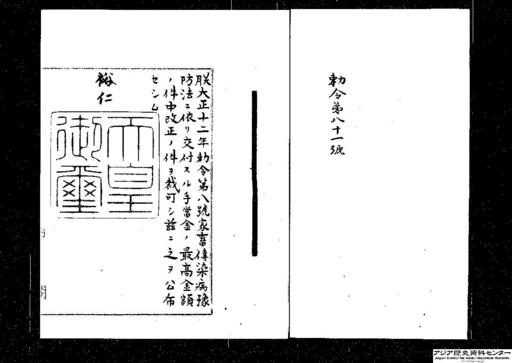 勅令第八十一號
朕大正十二年勅令第八號家畜傳染病豫
防法ニ依リ交付スル手當金ノ最高金額
ノ件中改正ノ件ヲ裁可シ茲ニ之ヲ公布
セシム
裕仁
天皇
御璽
アジア歴史資料センター
Japan Center for Asian Historical Records